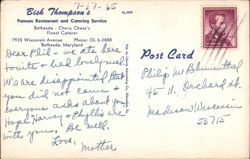 7-27-65
Bish Thompson's
Famous Restaurant and Catering Service
Bethesda - Chevy Chase's
Finest Caterer
7935 Wisconsin Avenue Phone: OL 6-2400
Bethesda, Maryland
Dear Phil - we ate here
tonite & had lovely meal.
We are disappointed that
you did not come &
everyone asks about you
Hope Harvey & Phyllis are
with you. Be well.
Love, Mother
Post Card
Philip M Blumenthal
45 N. Orchard St.
Madison Wisconsin
53715